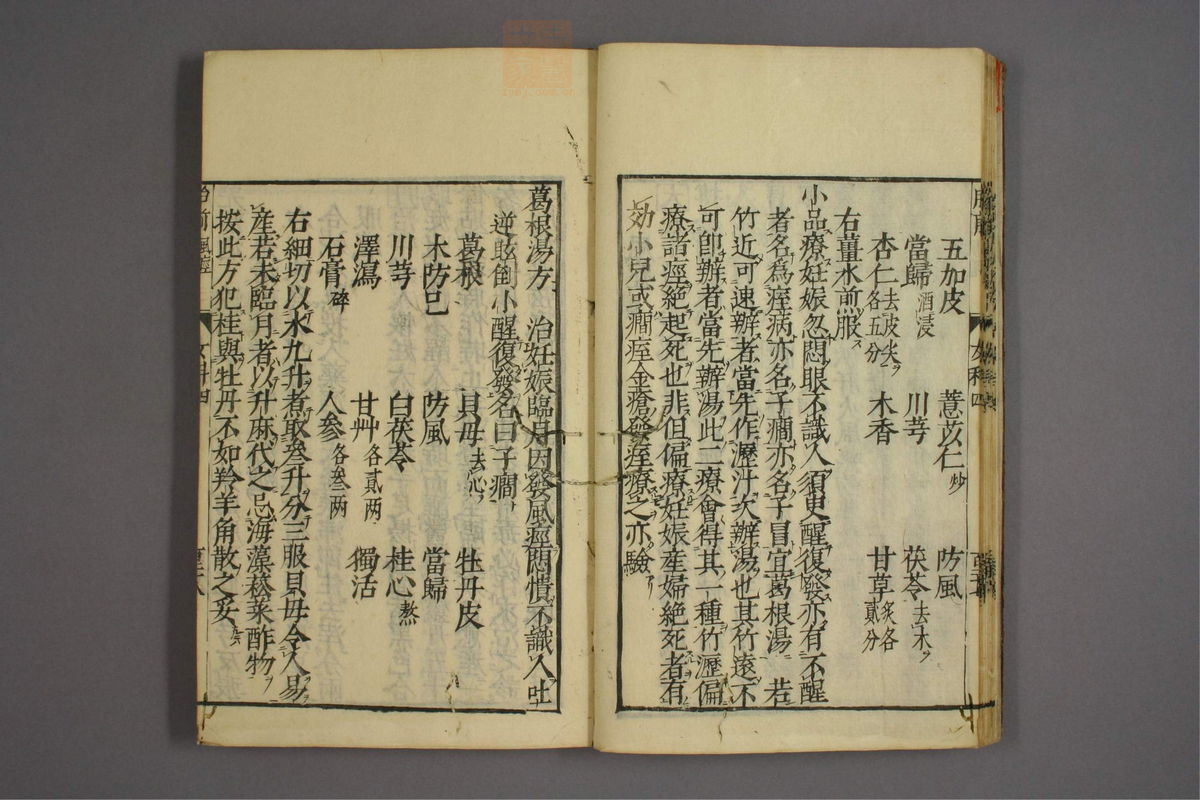 五加皮 薏苡仁炒 防風
當歸酒浸 川芎 茯苓去木ヲ
杏仁去皮尖ヲ各五分 木香 甘草炙各貳分
右薑水煎服ス
小品療妊娠忽悶眼不識人須臾醒復發亦有不醒
者名爲痙病亦名子癇亦名子冒宜葛根湯 若
竹近可速辦者當先作瀝汁次辦湯也其竹遠不
可卽辦者當先辦湯此二療會得其一種竹瀝偏
療諸痙絶起死也非但偏療妊娠産婦絶死者有
効小兒或癇痙金瘡發痙療之亦驗
女科四
葛根湯方 治妊娠臨月因發風痙悶憒不識人吐
逆眩倒小醒復發名曰子癇
葛根 貝母去心ヲ 牡丹皮
木防己 防風 當歸
川芎 白茯苓 桂心熬
澤瀉 甘艸各貳两 獨活
石膏碎 人參各叁两
右細切以水九升煮取叁升分三服貝母令人易
産若未臨月者以升麻代之忌海藻菘菜酢物ヲ
按此方犯桂與牡丹不如羚羊角散之妥
女科四